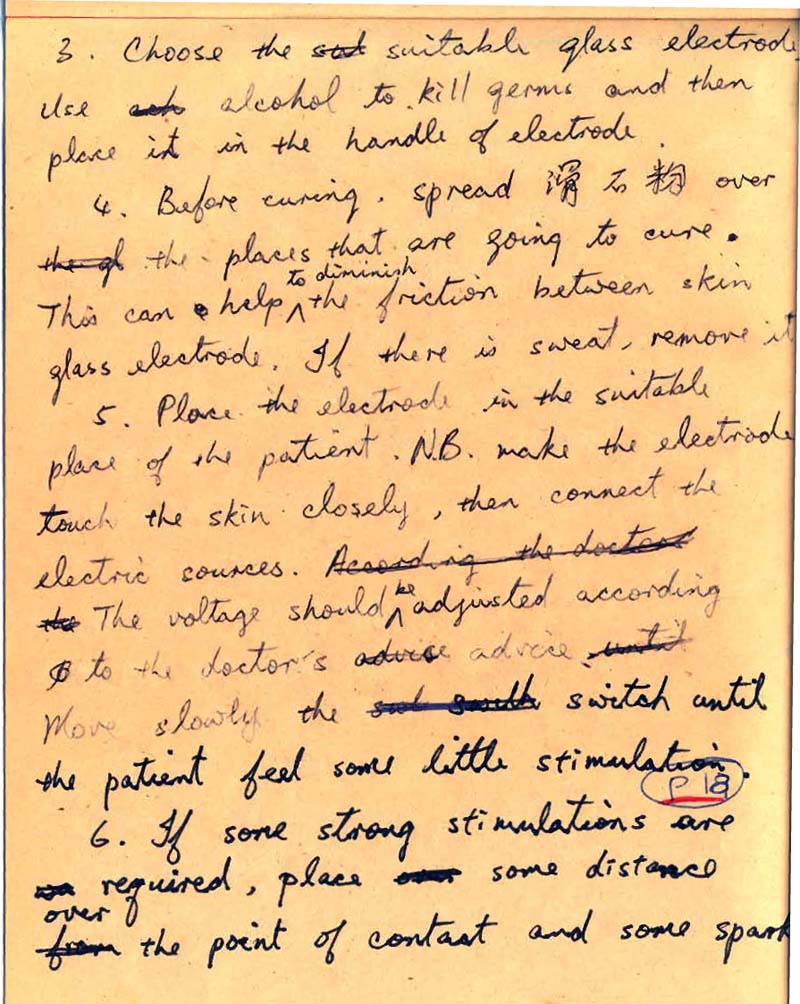 3. Choose the suitable glass electrode
Use alcohol to kill germs and then
place it in the handle of electrode.
4. Before curing. spread 滑石粉 over
the places that are going to cure.
This can help to diminish the friction between skin
glass electrode. If there is sweat, remove it
5. Place the electrode in the suitable
place of the patient. N.B. make the electrode
touch the skin closely, then connect the
electric sources. According the doctors
The voltage should be adjusted according
to the doctor's advice advice. until
Move slowly the switch until
the patient feel some little stimulation.
P 18
6. If some strong stimulations are
required, place some distance
over from the point of contact and some spark